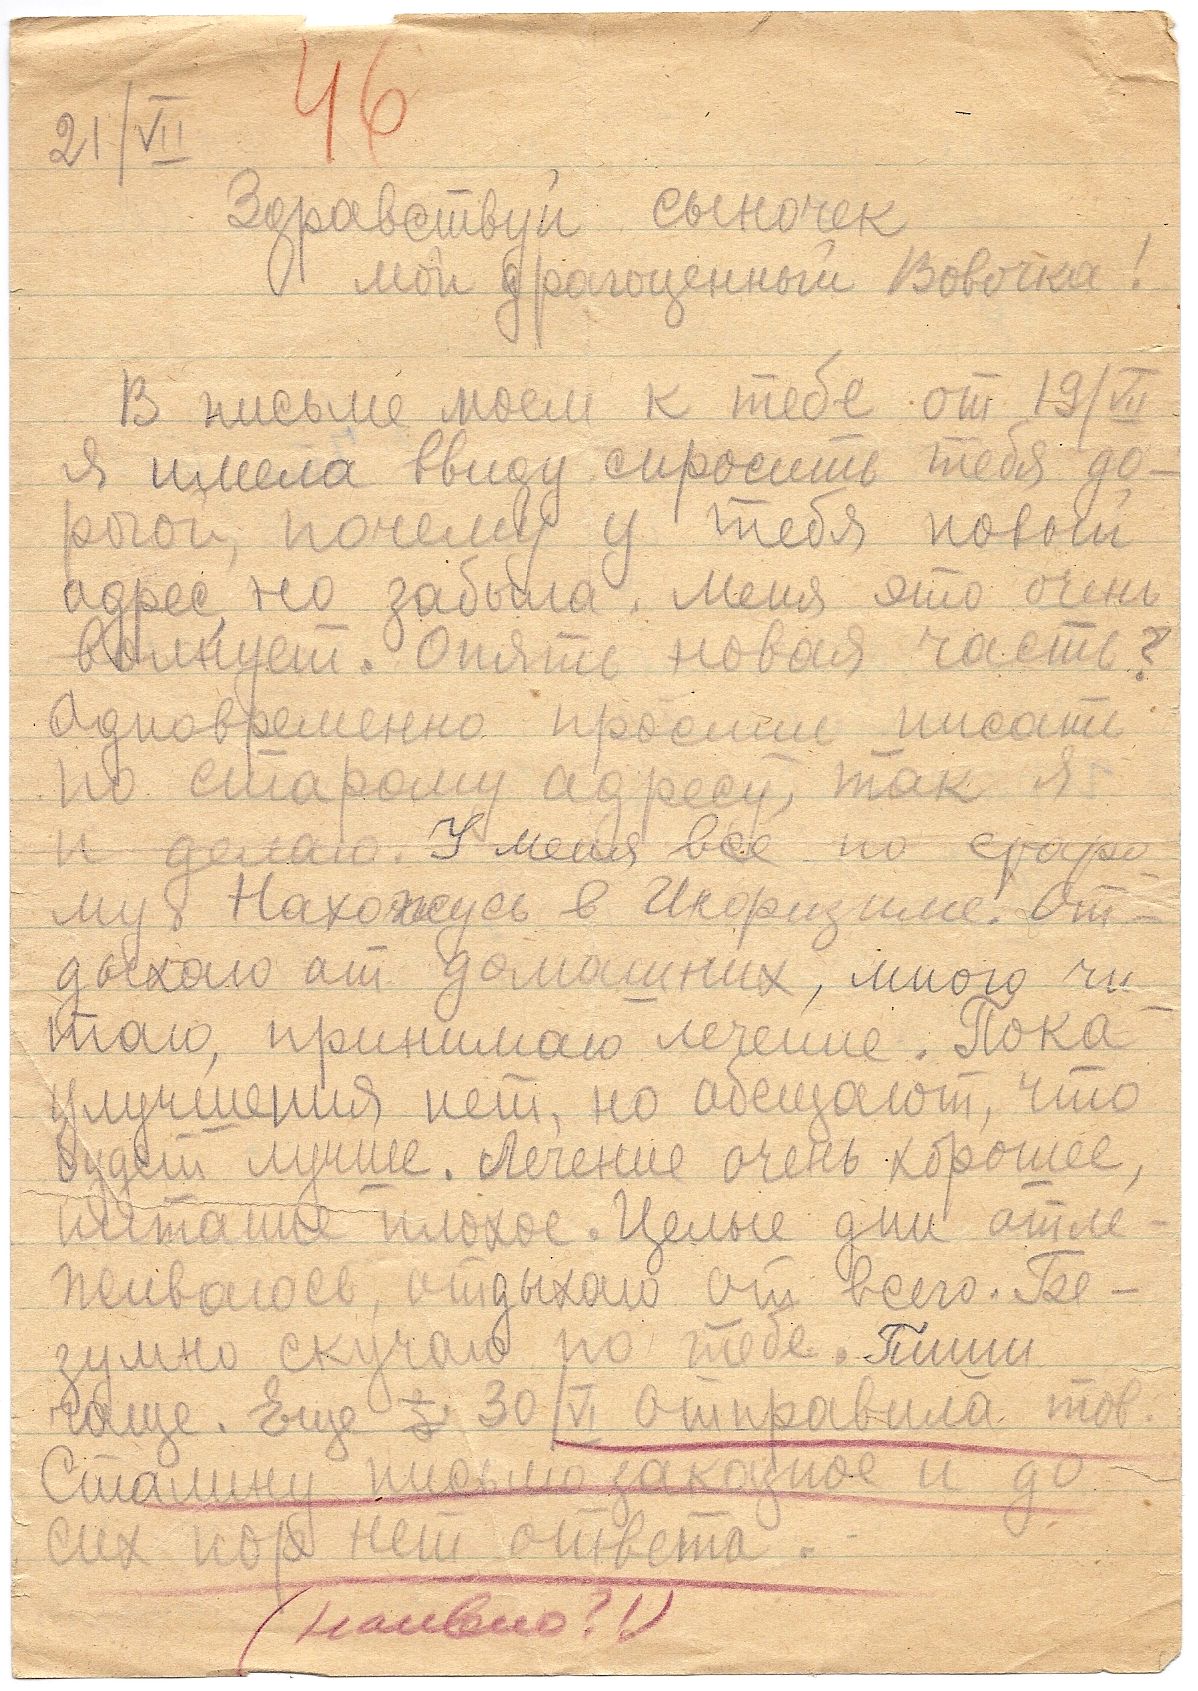 46
21/VII
Здравствуй сыночек
мой драгоценный Вовочка!
В письме моем к тебе от 19/VII
я имела ввиду спросить тебя до-
рогой, почему у тебя новый
адрес, но забыла. Меня это очень
волнует. Опять новая часть?
Одновременно просиш писать
по старому адресу, так я
и делаю. У меня всё по старо
му. Нахожусь в Инфризмле. От-
дыхаю от домашних, много чи-
таю, принимаю лечение. Пока
улучшения нет, но обещают, что
будет лучше. Лечение очень хорошее,
питание плохое. Целые дни отле-
живаюсь, отдыхаю от всего. Бе-
зумно скучаю по тебе. Пиши
чаще. Еще 30/VI отправила тов.
Сталину письмо заказное и до
сих пор нет ответа.
(наивно?!)